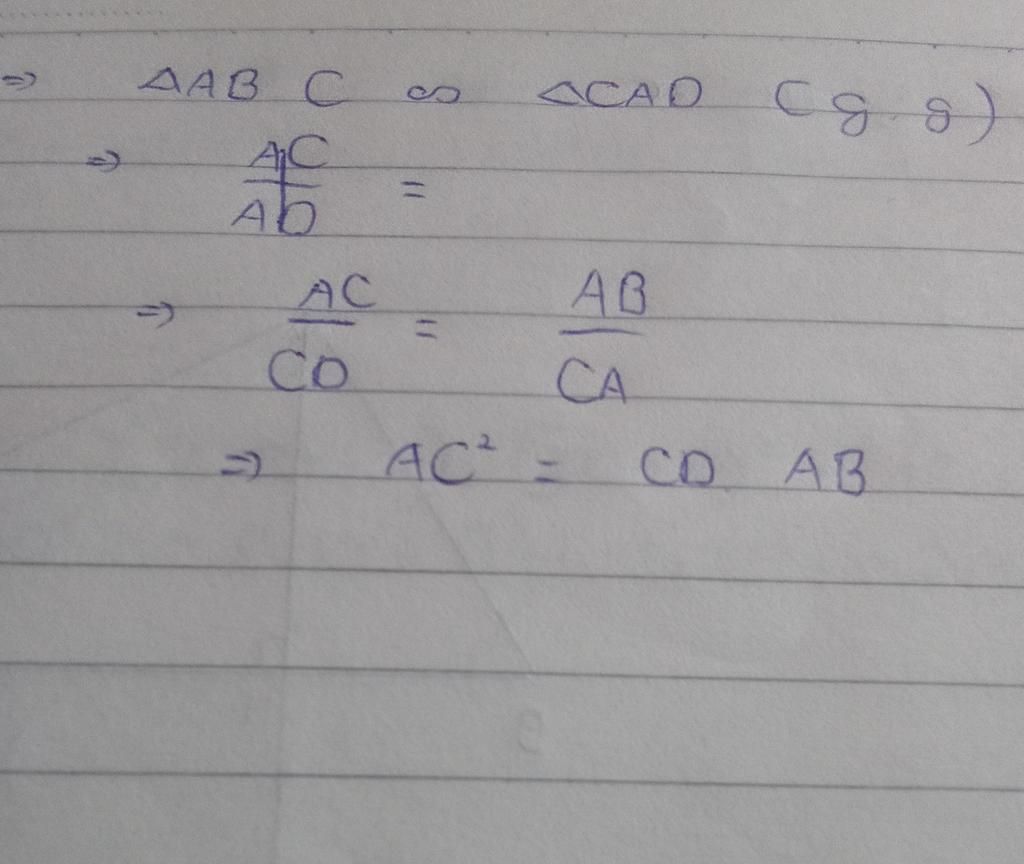 ⇒ ΔABC ∽ ΔCAD (g g)
⇒ AC/AD =
⇒ AC/CD = AB/CA
⇒ AC² = CD AB